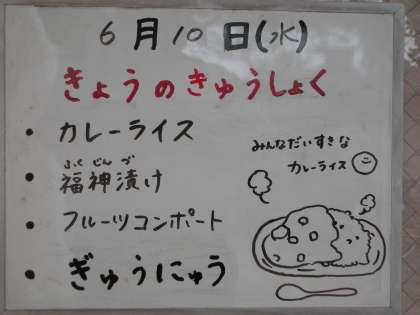 6月10日(水)
きょうのきゅうしょく
• カレーライス
ふくじんづ
• 福神漬け
• フルーツコンポート
• ぎゅうにゅう
みんなだいすきな
カレーライス